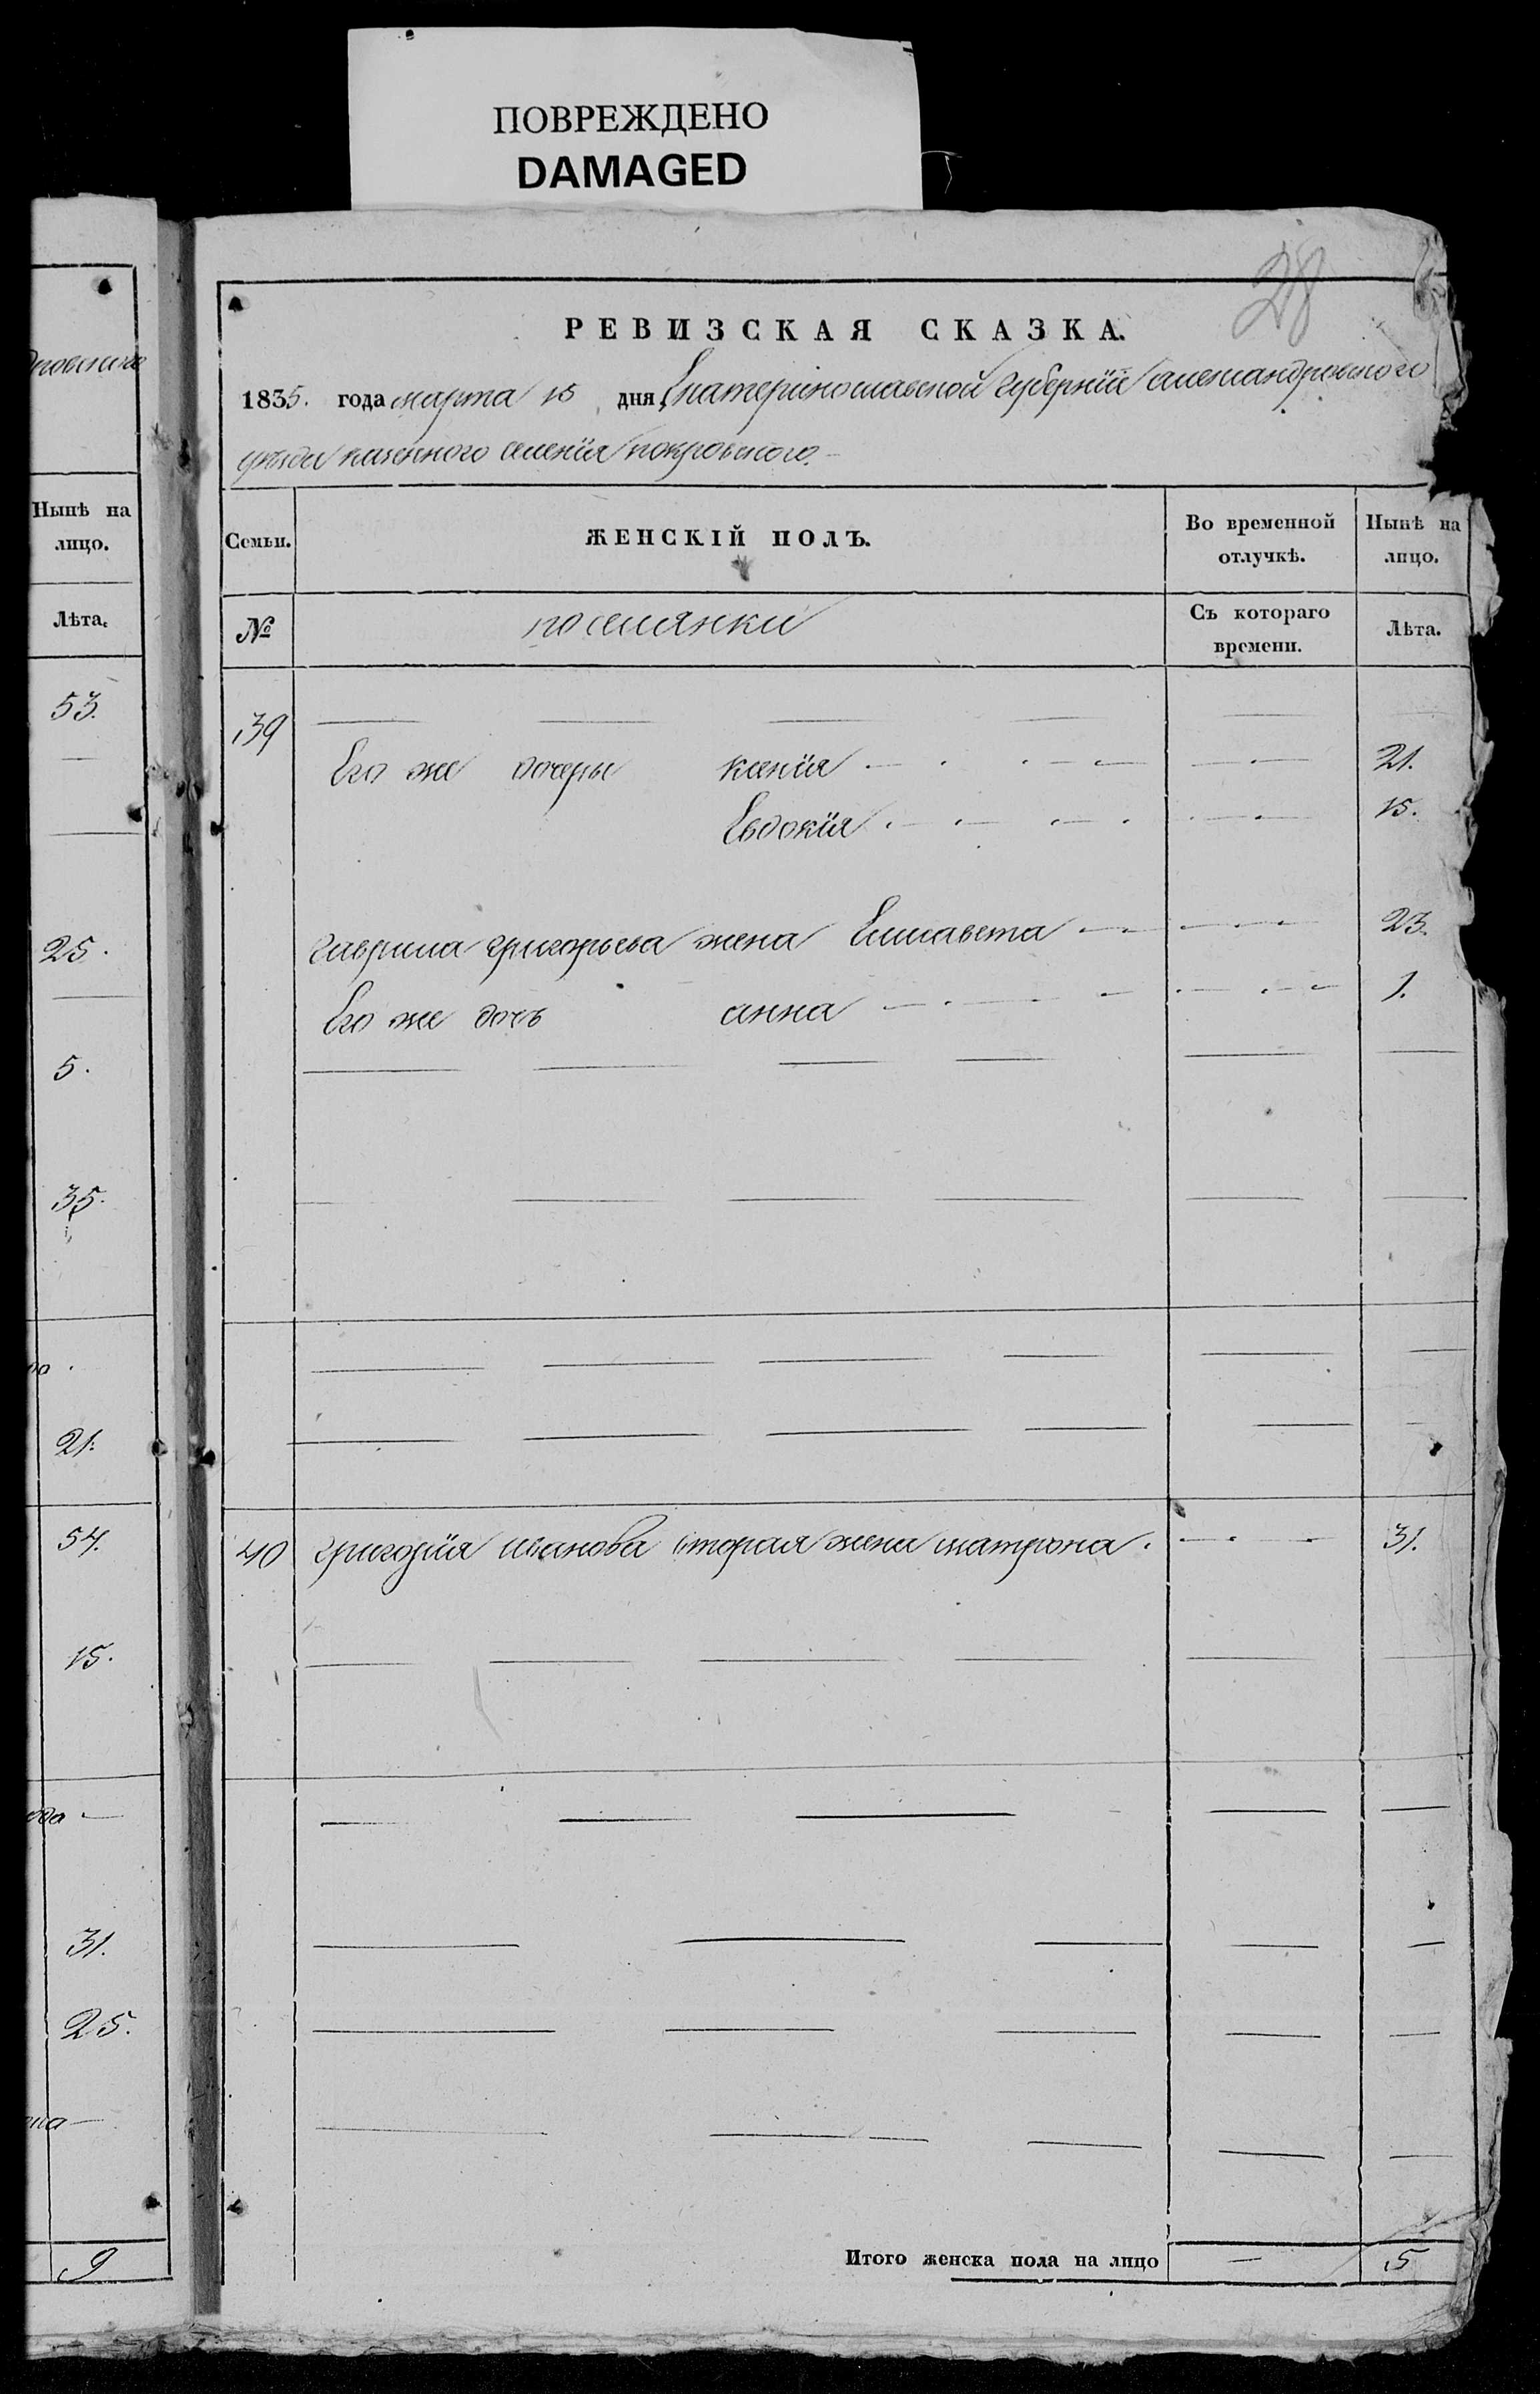 ПОВРЕЖДЕНО
DAMAGED
28
РЕВИЗСКАЯ СКАЗКА.
1835. года марта 15 дня, Екатеринославской губернїи александровского
уѣзда казенного селенїя покровского.
Нынѣ на
лицо.
Лѣта.
53.
25.
5.
35.
21.
54.
15.
31.
25.
9
Семьи.
ЖЕНСКІЙ ПОЛЪ.
Во временной
отлучкѣ.
Нынѣ на
лицо.
№
поселянки
Съ котораго
времени.
Лѣта.
39
Его же дочери ксенїя 21.
Евдокїя 15.
гаврила григорьева жена Елисавета 23.
Его же дочь анна 1.
40 григорїя иванова вторая жена матрона. 31.
Итого женска пола на лицо — 5